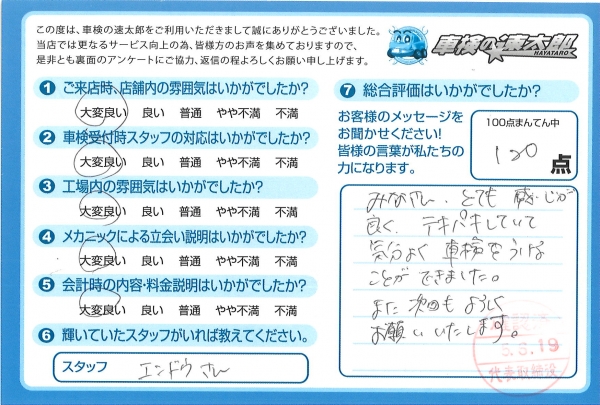 この度は、車検の速太郎をご利用いただきまして誠にありがとうございました。
当店では更なるサービス向上の為、皆様方のお声を集めておりますので、
是非とも裏面のアンケートにご協力、返信の程よろしくお願い申し上げます。
車検の速太郎
HAYATARO
1 ご来店時、店舗内の雰囲気はいかがでしたか?
大変良い 良い 普通 やや不満 不満
2 車検受付時スタッフの対応はいかがでしたか?
大変良い 良い 普通 やや不満 不満
3 工場内の雰囲気はいかがでしたか?
大変良い 良い 普通 やや不満 不満
4 メカニックによる立会い説明はいかがでしたか?
大変良い 良い 普通 やや不満 不満
5 会計時の内容・料金説明はいかがでしたか?
大変良い 良い 普通 やや不満 不満
6 輝いていたスタッフがいれば教えてください。
スタッフ エンドウさん
7 総合評価はいかがでしたか?
お客様のメッセージを
お聞かせください!
皆様の言葉が私たちの
力になります。
100点まんてん中
120 点
みなさん、とても感じが
良く、テキパキしていて
気分よく車検をうける
ことができました。
また次回もよろしく
お願いいたします。
5.3.19
代表取締役